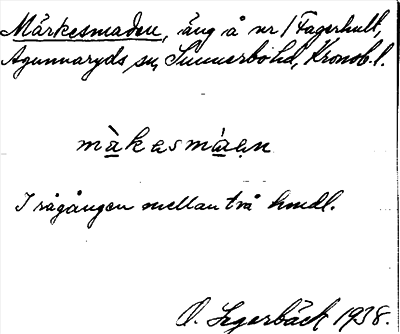 Märkesmaden, äng å nr 1 Fagerhult,
Agunnaryds sn, Sunnerbo hd, Kronob. l.
màkasmáen
I rågången mellan två hmdl.
O. Segerbäck 1938.